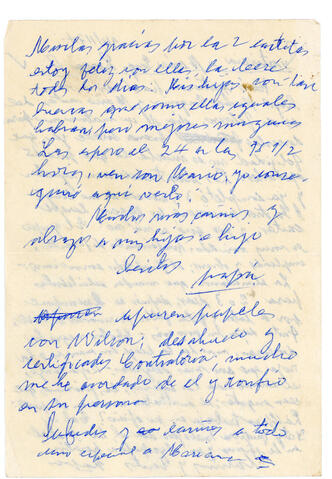 Muchas gracias por la 2 cartitas
estoy feliz con ellas, la leeré
todos los días. Mis hijas son tan
buenas que como ellas iguales
habrán pero mejores ningunas
Las espero el 24 a las 9 1/2
horas, ven con Mario, yo conse-
guiré aquí verlo!
Muchos más cariños y
abrazos a mis hijas e hijo
papá
apuren papeles
con Wilson; desahucio y
certificados Contraloría, mucho
me he acordado de el y confío
en su persona
Saludos y cariños a todo
uno especial a Mariana